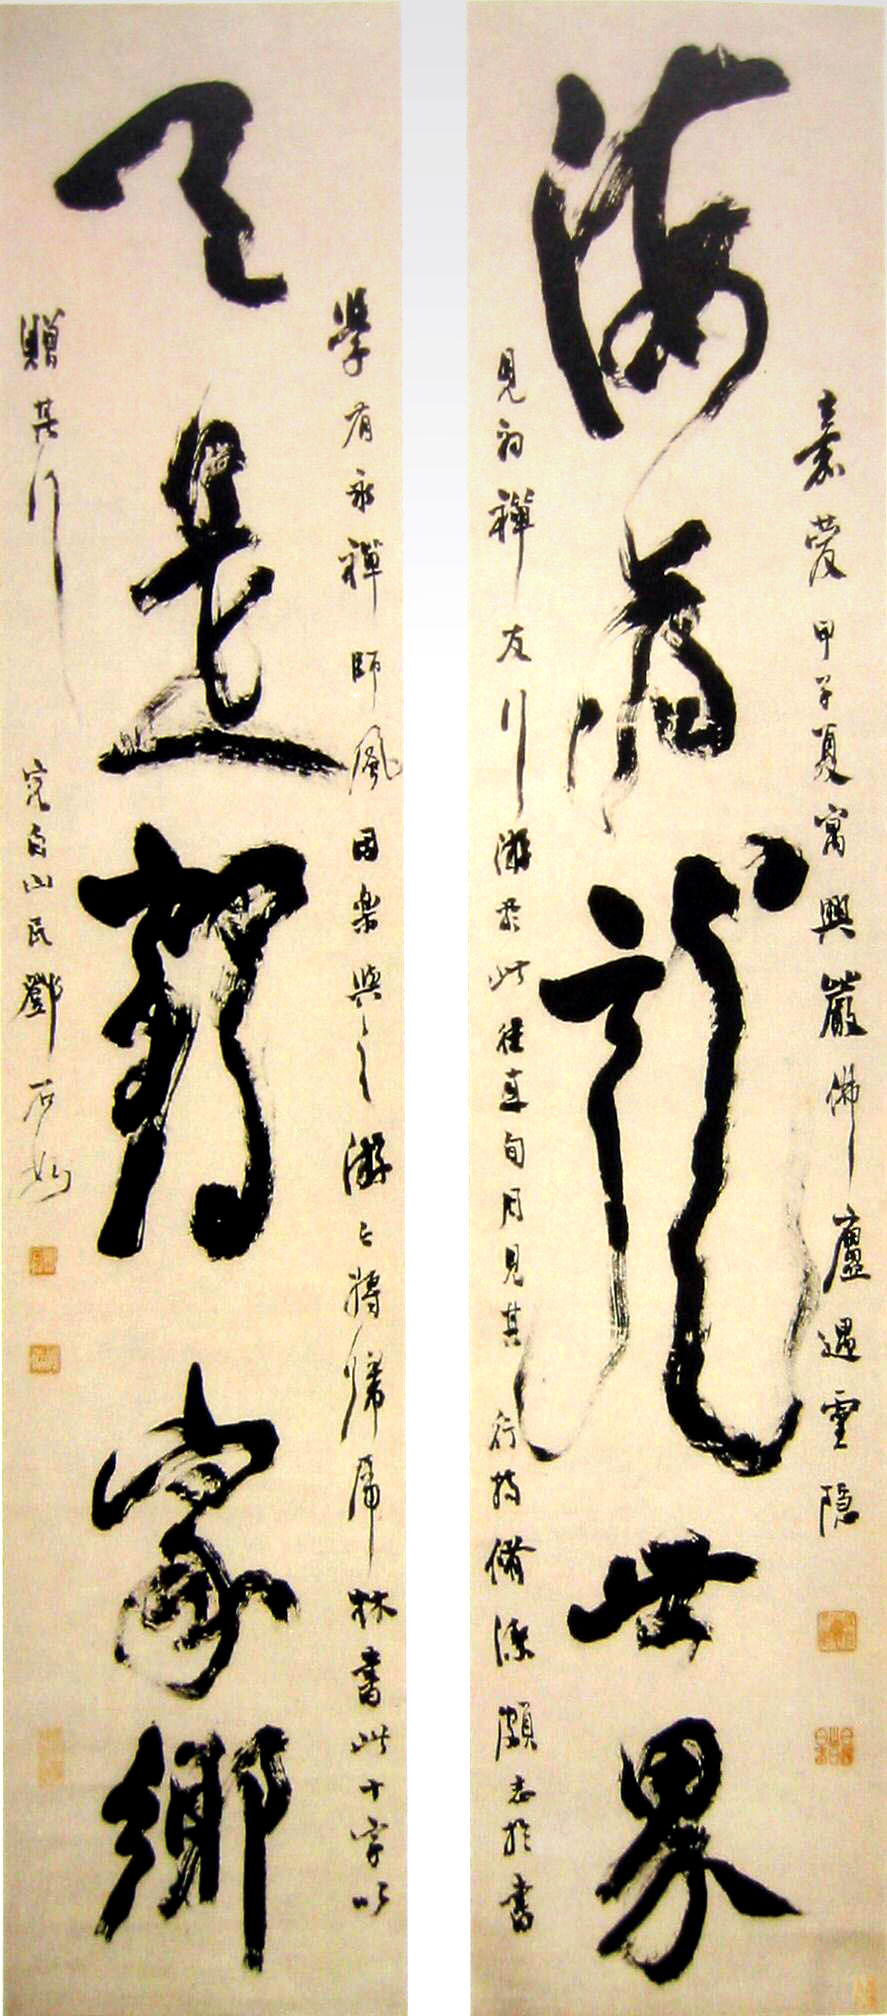 海為龍世界
天是鶴家鄉
嘉慶甲子夏寓興嚴佛廬遇靈隱
見初禪友行游於此旬月見其行持脩潔頗志於書
學有永禪師風因樂與之游將歸虎林書此十字以
贈其行
完白山民鄧石如